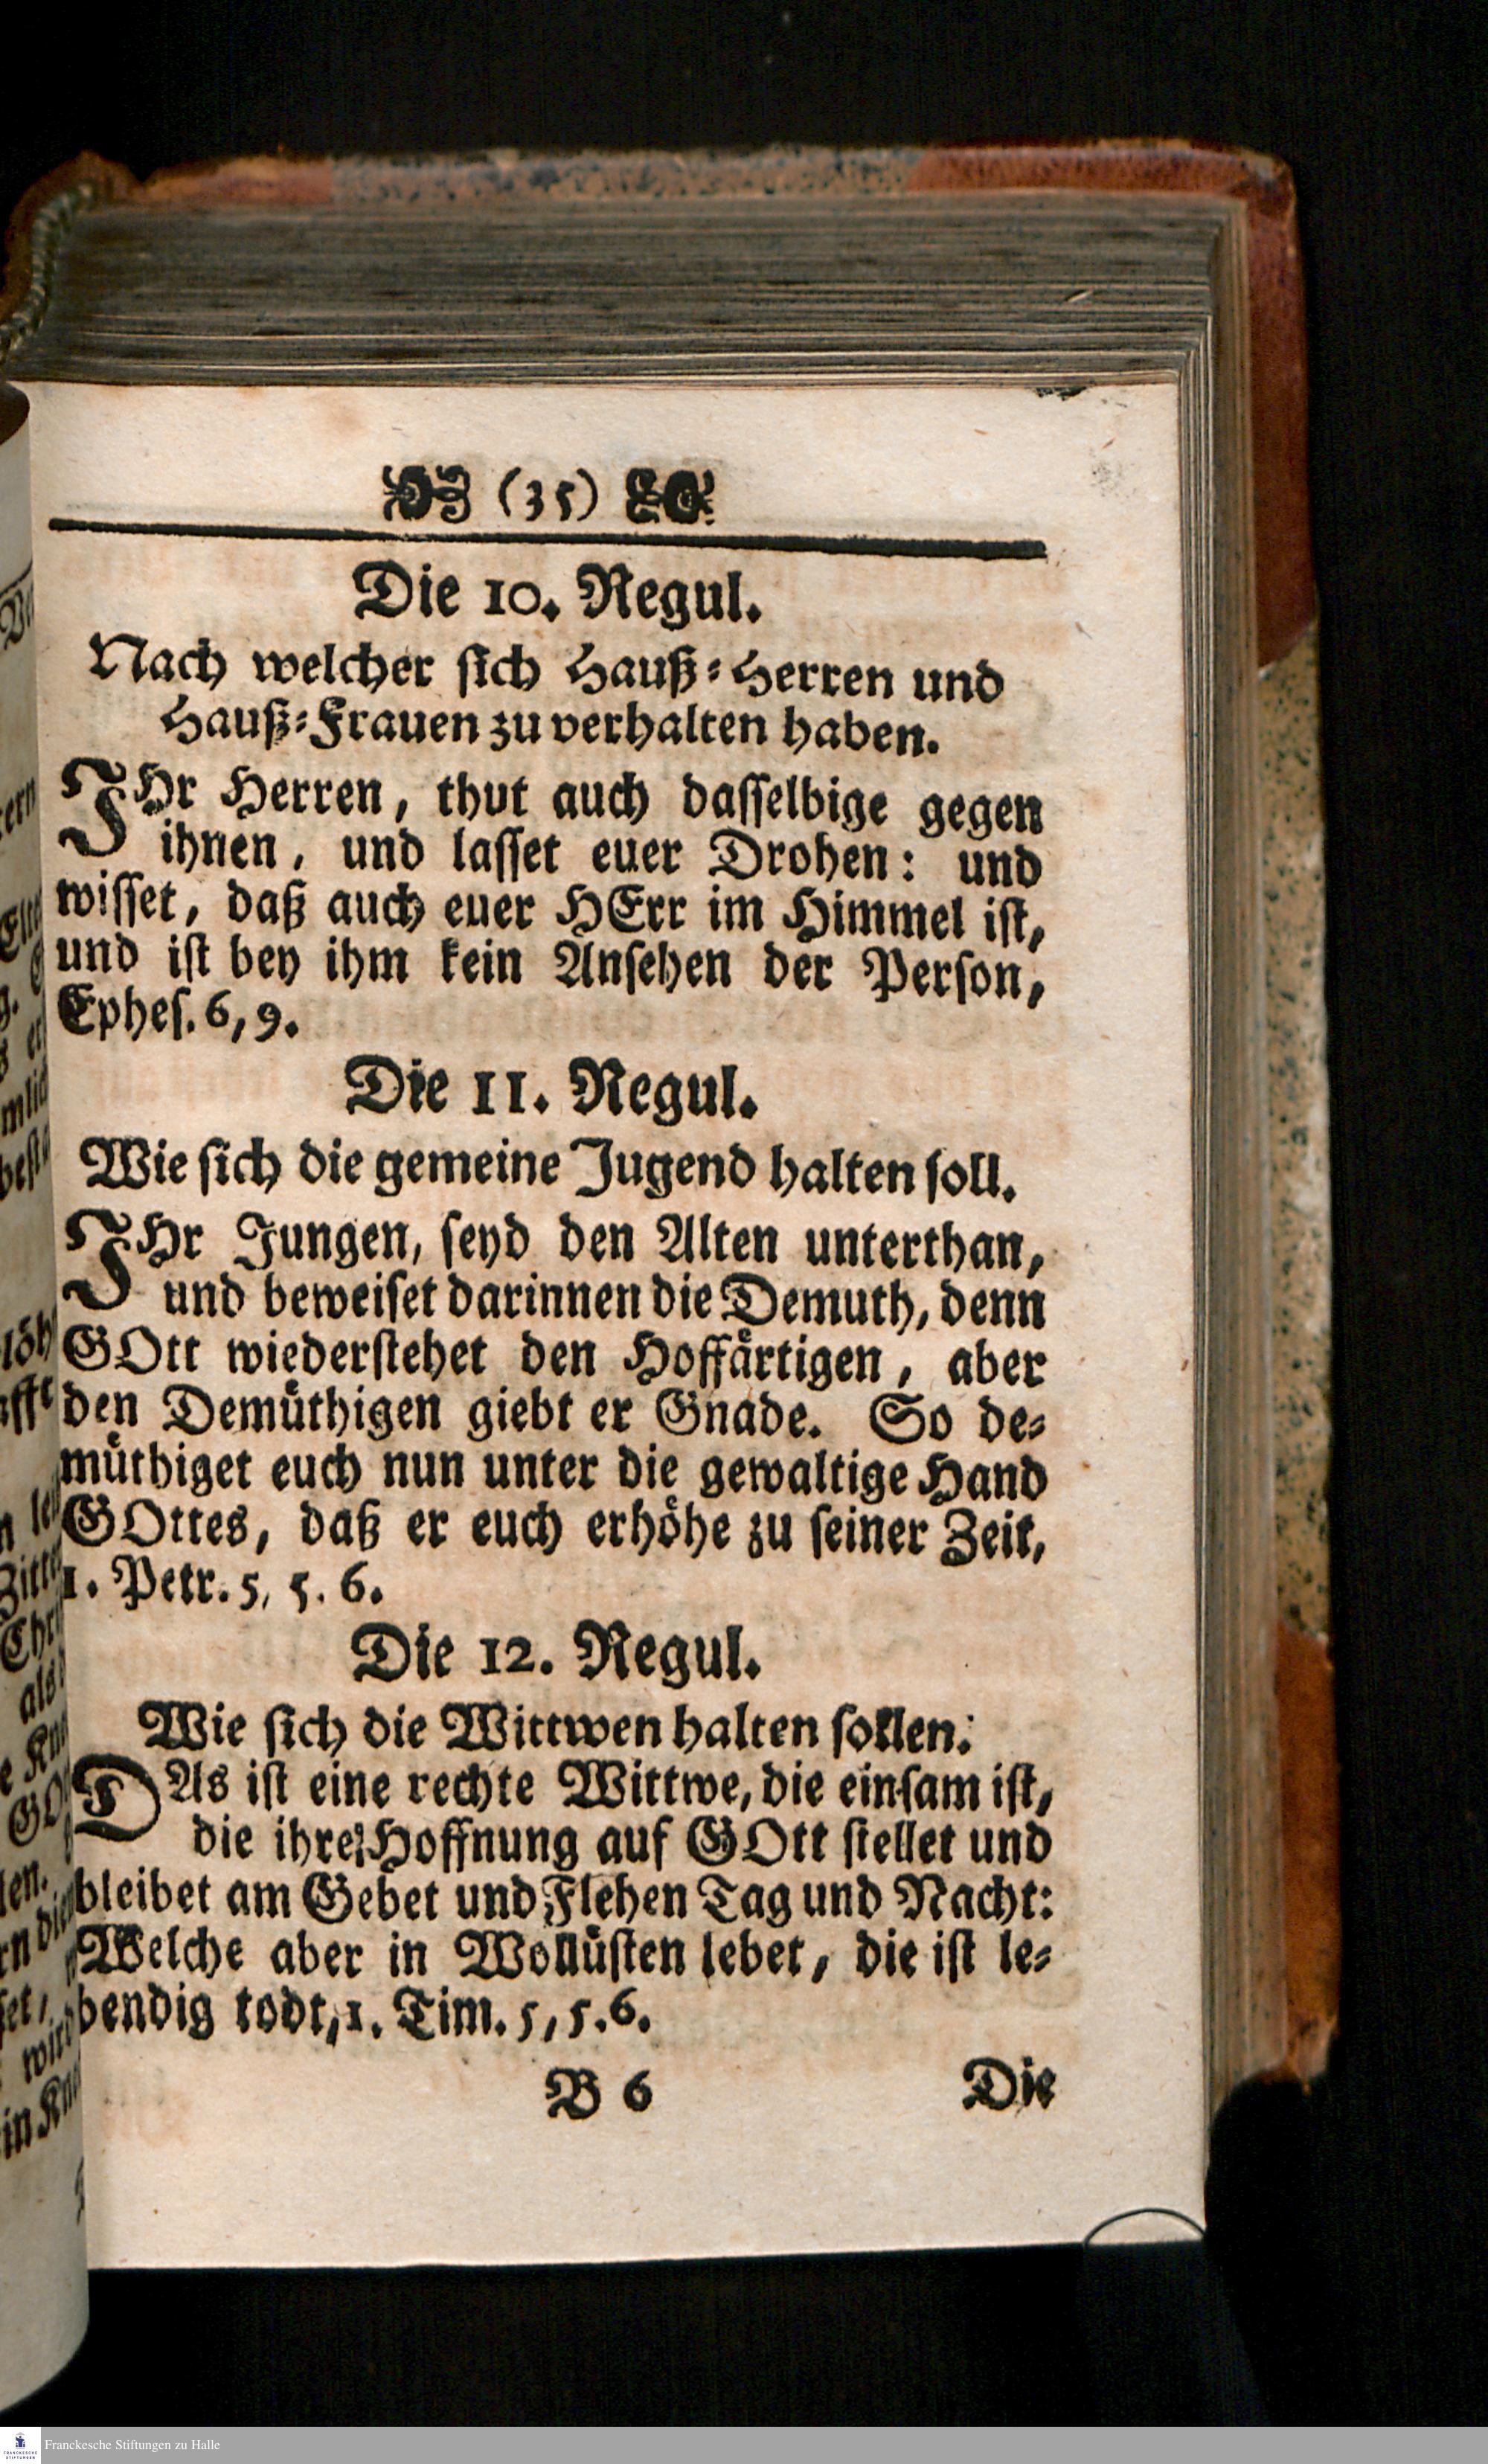 (35)
Die 10. Regul.
Nach welcher sich Hauß-Herren und
Hauß-Frauen zu verhalten haben.
IHr Herren, thut auch dasselbige gegen
ihnen, und lasset euer Drohen: und
wisset, daß auch euer HErr im Himmel ist,
und ist bey ihm kein Ansehen der Person,
Ephes. 6, 9.
Die 11. Regul.
Wie sich die gemeine Jugend halten soll.
IHr Jungen, seyd den Alten unterthan,
und beweiset darinnen die Demuth, denn
GOtt wiederstehet den Hoffärtigen, aber
den Demüthigen giebt er Gnade. So de-
müthiget euch nun unter die gewaltige Hand
GOttes, daß er euch erhöhe zu seiner Zeit,
1. Petr. 5, 5. 6.
Die 12. Regul.
Wie sich die Wittwen halten sollen:
DAs ist eine rechte Wittwe, die einsam ist,
die ihre Hoffnung auf GOtt stellet und
bleibet am Gebet und Flehen Tag und Nacht:
Welche aber in Wollüsten lebet, die ist le-
bendig todt, 1. Tim. 5, 5. 6.
B 6
Die
Franckesche Stiftungen zu Halle